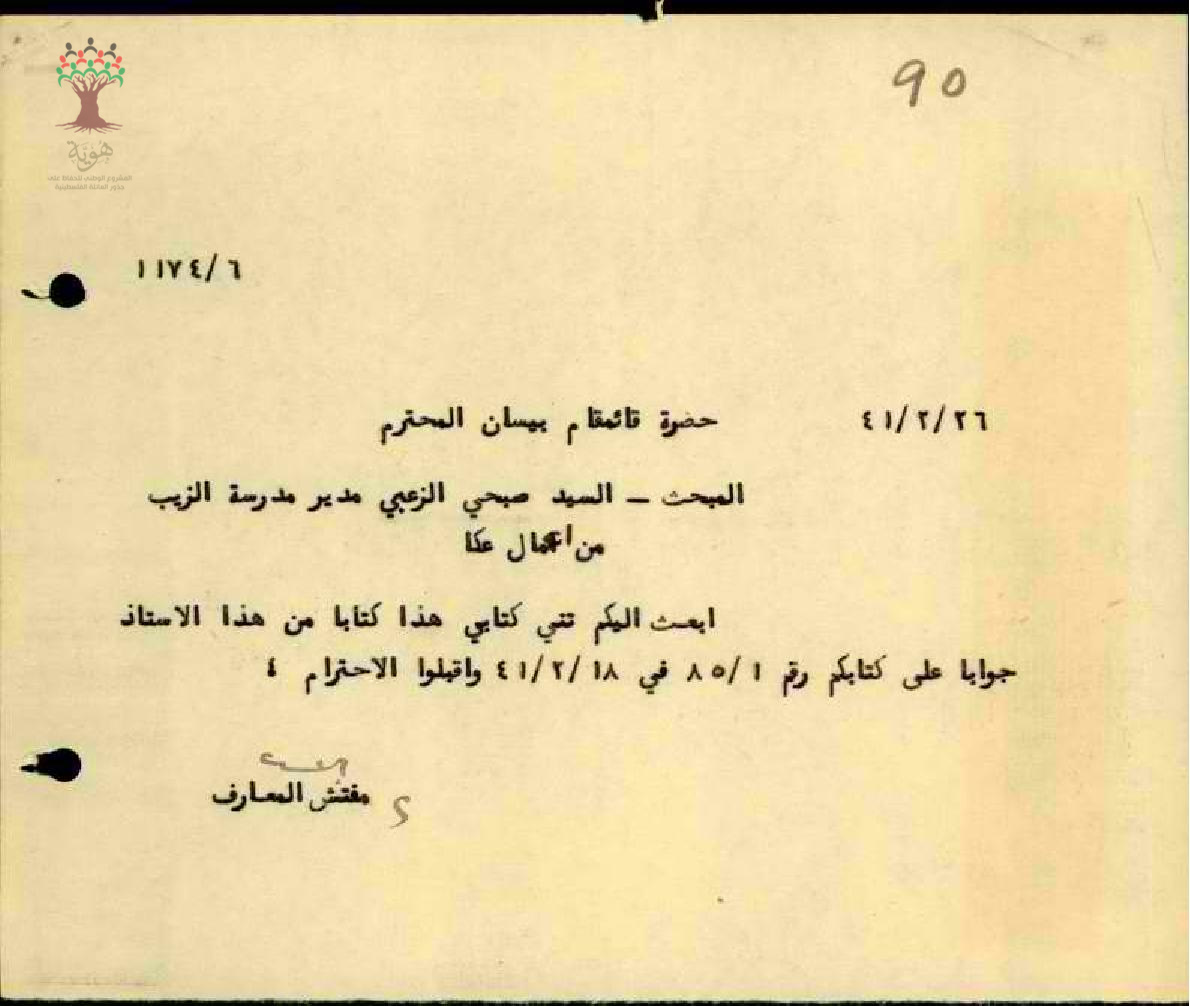 90
هوية
المشروع الوطني للحفاظ على
جذور العائلة الفلسطينية
١١٧٤/٦
٤١/٢/٢٦
حضرة قائمقام بيسان المحترم
المبحث – السيد صبحي الزعبي مدير مدرسة الزيب
من اعمال عكا
ابعث اليكم تني كتابي هذا كتابا من هذا الاستاذ
جوابا على كتابكم رقم ٨٥/١ في ٤١/٢/١٨ واقبلوا الاحترام ٤
مفتش المعارف